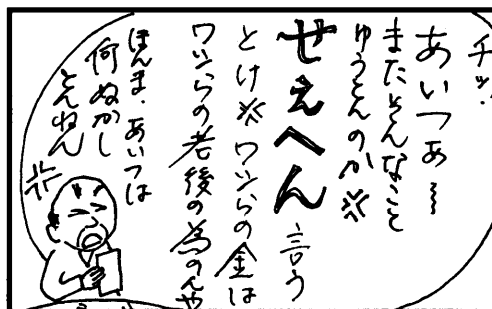 チッ、
あいつあ〜
またそんなこと
ゆうとんのか
せぇへん言う
とけ ワシらの金は
ワシらの老後の為のんや
ほんま、あいつは
何ぬかし
とんねん